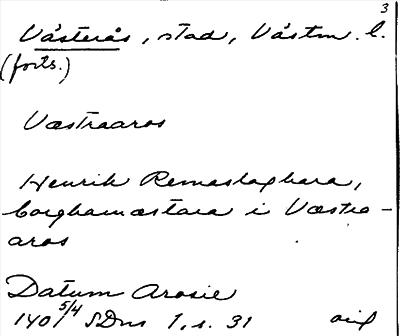 3
Västerås, stad, Västm. l.
(forts.)
Væstraaros
Henrik Remaslaghara,
borghamæstara i Væstra-
aros
Datum Arosie
1401 5/4 SDns 1, s. 31 orig